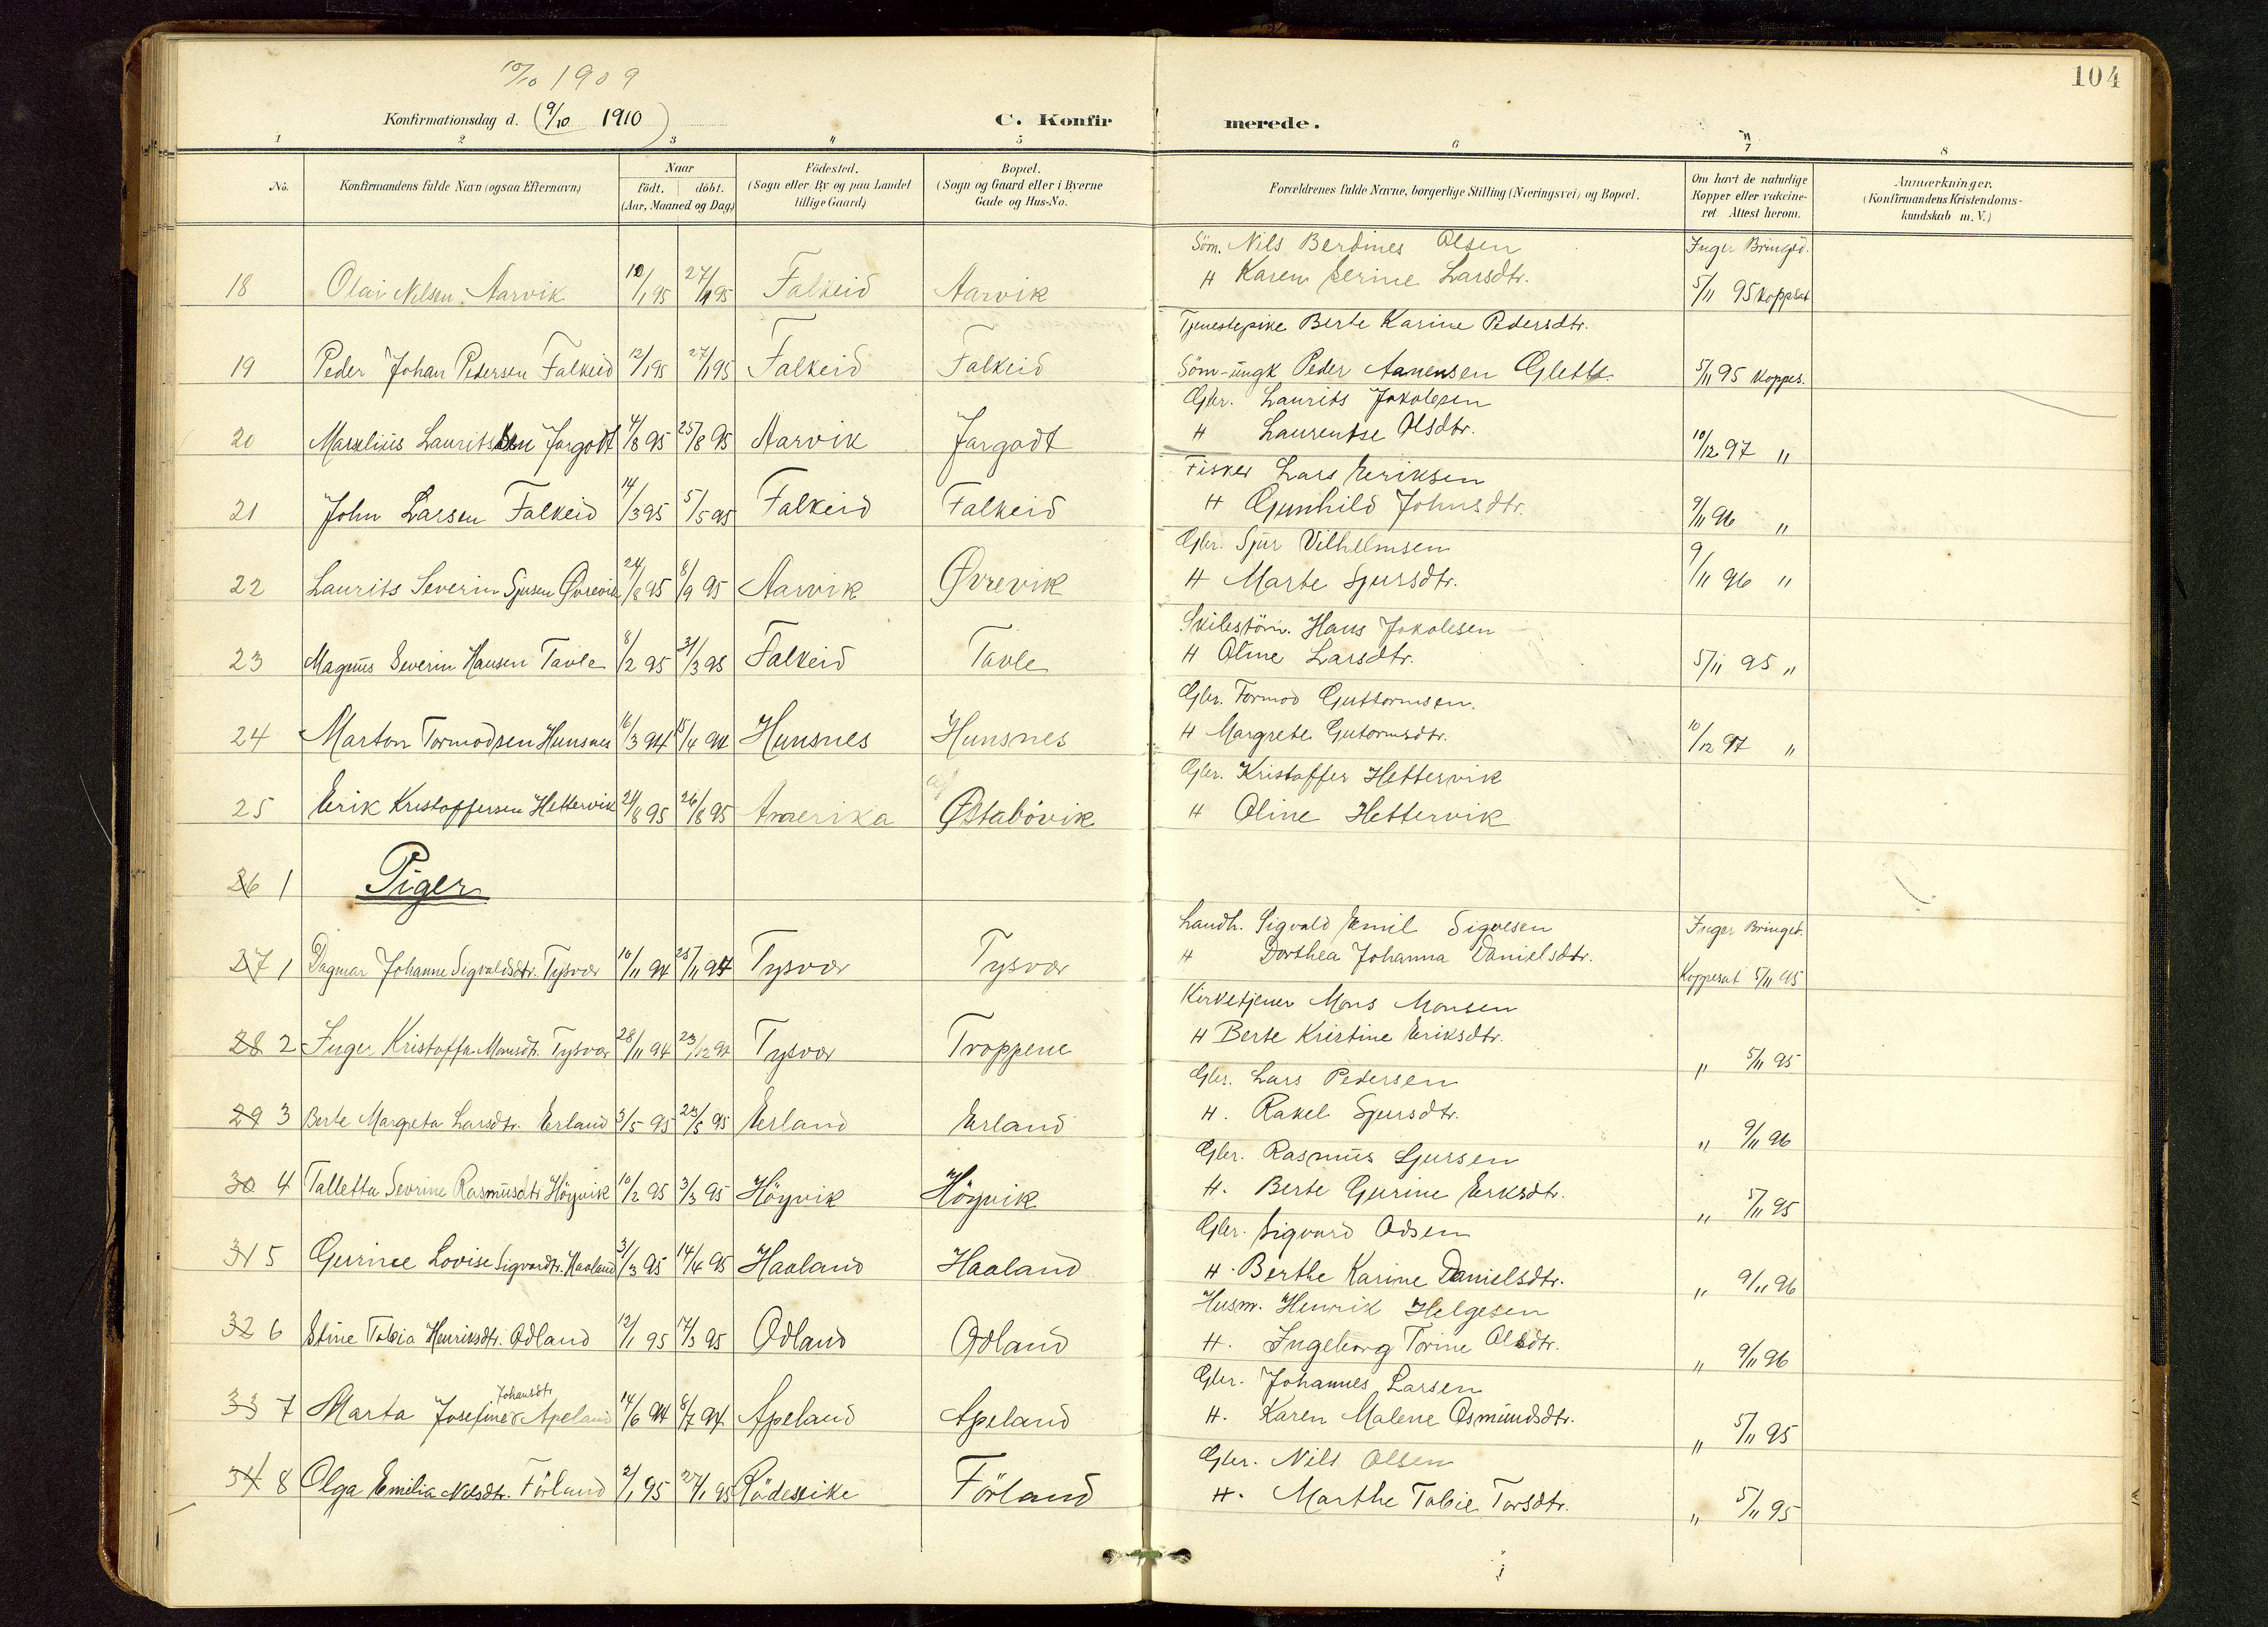 104
10/10 1909
Konfirmationsdag d. (9/10 1910)
C. Konfirmerede.
1 2 3 4 5 6 7 8
No. Konfirmandens fulde Navn (ogsaa Efternavn) Naar født. døbt. (Aar, Maaned og Dag.) Födested. (Sogn eller By og paa Landet tillige Gaard) Bopæl. (Sogn og Gaard eller i Byerne Gade og Hus-No. Forældrenes fulde Navne, borgerlige Stilling (Næringsvei) og Bopæl. Om havt de naturlige Kopper eller vakcineret. Attest herom. Anmærkninger. (Konfirmandens Kristendomskundskab m. V.)
Söm. Nils Berdines Olsen Inger Bringed.
18 Olai Nilsen Aarvik 12/1 95 27/1 95 Falkeid Aarvik H Karen Serine Larsdtr. 5/11 95 Koppsat
Tjenestepike Berte Karine Pedersdtr.
19 Peder Johan Petersen Falkeid 12/1 95 27/1 95 Falkeid Falkeid Söm-ungk Peder Aanensen Glette 5/11 95 Koppes.
Gbr. Laurits Jakolesen
20 Marselius Lauritssen Jargodt 4/8 95 25/8 95 Aarvik Jargodt H Laurentse Olsdtr. 10/12 97 "
Fisker Lars Eeriksen
21 John Larsen Falkeid 14/3 95 5/5 95 Falkeid Falkeid H Gunhild Johnsdtr. 9/11 96 "
Gbr. Sjur Vilhelmsen
22 Laurits Severin Sjursen Øvrevik 24/8 95 8/9 95 Aarvik Øvrevik H Marte Sjursdtr. 9/11 96 "
Skilestöm. Hans Jakolesen
23 Magnus Severin Hansen Tavle 8/2 95 31/3 95 Falkeid Tavle H Oline Larsdtr. 5/11 95 "
Gbr. Tormod Guttormsen.
24 Marton Tormodsen Hunsnes 16/3 94 15/4 94 Hunsnes Hunsnes H Margrete Gutormsdtr. 10/12 97 "
Gbr. Kristoffer Hettervik
25 Erik Kristoffersen Hettervik 24/8 95 26/8 95 Amerika Østabövik H Oline Hettervik
26 1 Piger
Landh. Sigvald Emil Sigvesen Inger Bringet.
27 1 Dagmar Johanne Sigvaldsdtr. Tysvær 10/11 94 25/11 94 Tysvær Tysvær H Dorthea Johanna Danielsdtr. Koppesat 5/11 95
Kirketjener Mons Monsen
28 2 Inger Kristoffa Monsdtr. Tysvær 28/11 94 23/12 94 Tysvær Troppene H Berte Kristine Eriksdtr. " 5/11 95
Gbr. Lars Pedersen
29 3 Berte Margreta Larsdtr. Erland 3/5 95 23/5 95 Erland Erland H. Rakel Sjursdtr. " 9/11 96
Gbr. Rasmus Sjursen
30 4 Talletta Sevrine Rasmusdtr Höyvik 10/2 95 3/3 95 Höyvik Höyvik H. Berte Gurine Erksdtr. " 5/11 95
Gbr. Sigvard Odsen
31 5 Gurine Lovise Sigvardtr. Haaland 31/3 95 14/4 95 Haaland Haaland H. Berthe Karine Danielsdtr. " 9/11 96
Husm. Henrik Helgesen
32 6 Stine Tobia Henriksdtr. Odland 12/1 95 17/3 95 Odland Odland H. Ingeborg Torine Olsdtr. " 9/11 96
Johansdtr Gbr. Johannes Larsen
33 7 Marta Josefine Apeland 14/6 94 8/7 94 Apeland Apeland H. Karen Malene Osmundsdtr. " 5/11 95
Gbr. Nils Olsen
34 8 Olga Emilia Nilsdtr. Förland 2/1 95 27/1 95 Rödespike Förland H. Marthe Tobie Torsdtr. " 5/11 95